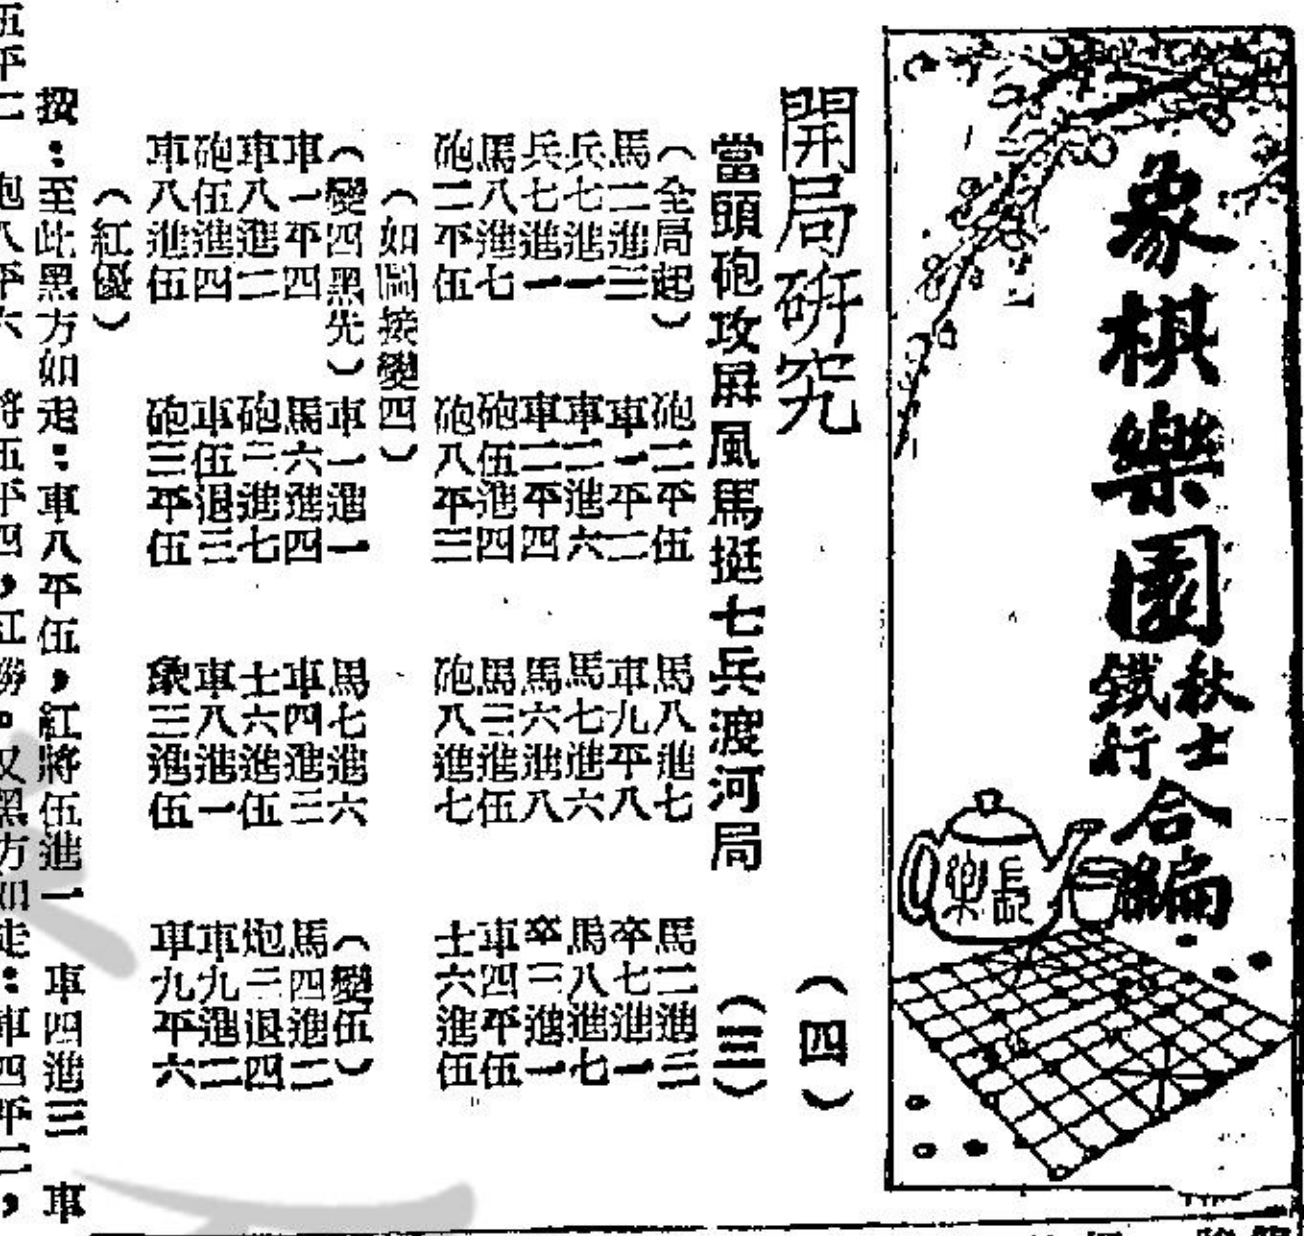 象棋樂園
秋士
鐵行
合編
開局研究 (四)
當頭砲攻屏風馬挺七兵渡河局 (三)
(全局起) 砲二平伍 馬八進七 馬二進三
馬二進三 車一平二 車九平八 卒七進一
兵七進一 車二進六 馬七進六 馬八進七
兵七進一 車二平四 馬六進八 卒三進一
馬八進七 砲伍進四 馬三進伍 車四平伍
砲二平伍 砲八平三 砲八進七 士六進伍
(如圖接變四)
(變四黑先) 車一進一 馬七進六 (變伍)
車一平四 馬六進四 車四進三 馬四進二
車八進二 砲三進七 士六進伍 炮三退四
砲伍進四 車伍退三 車八進一 車九進二
車八進伍 砲三平伍 象三進伍 車九平六
(紅優)
按：至此黑方如走：車八平伍，紅將伍進一 車四進三 車
伍平二 炮八平六 將伍平四，紅勝。又黑方如走：車四平二，